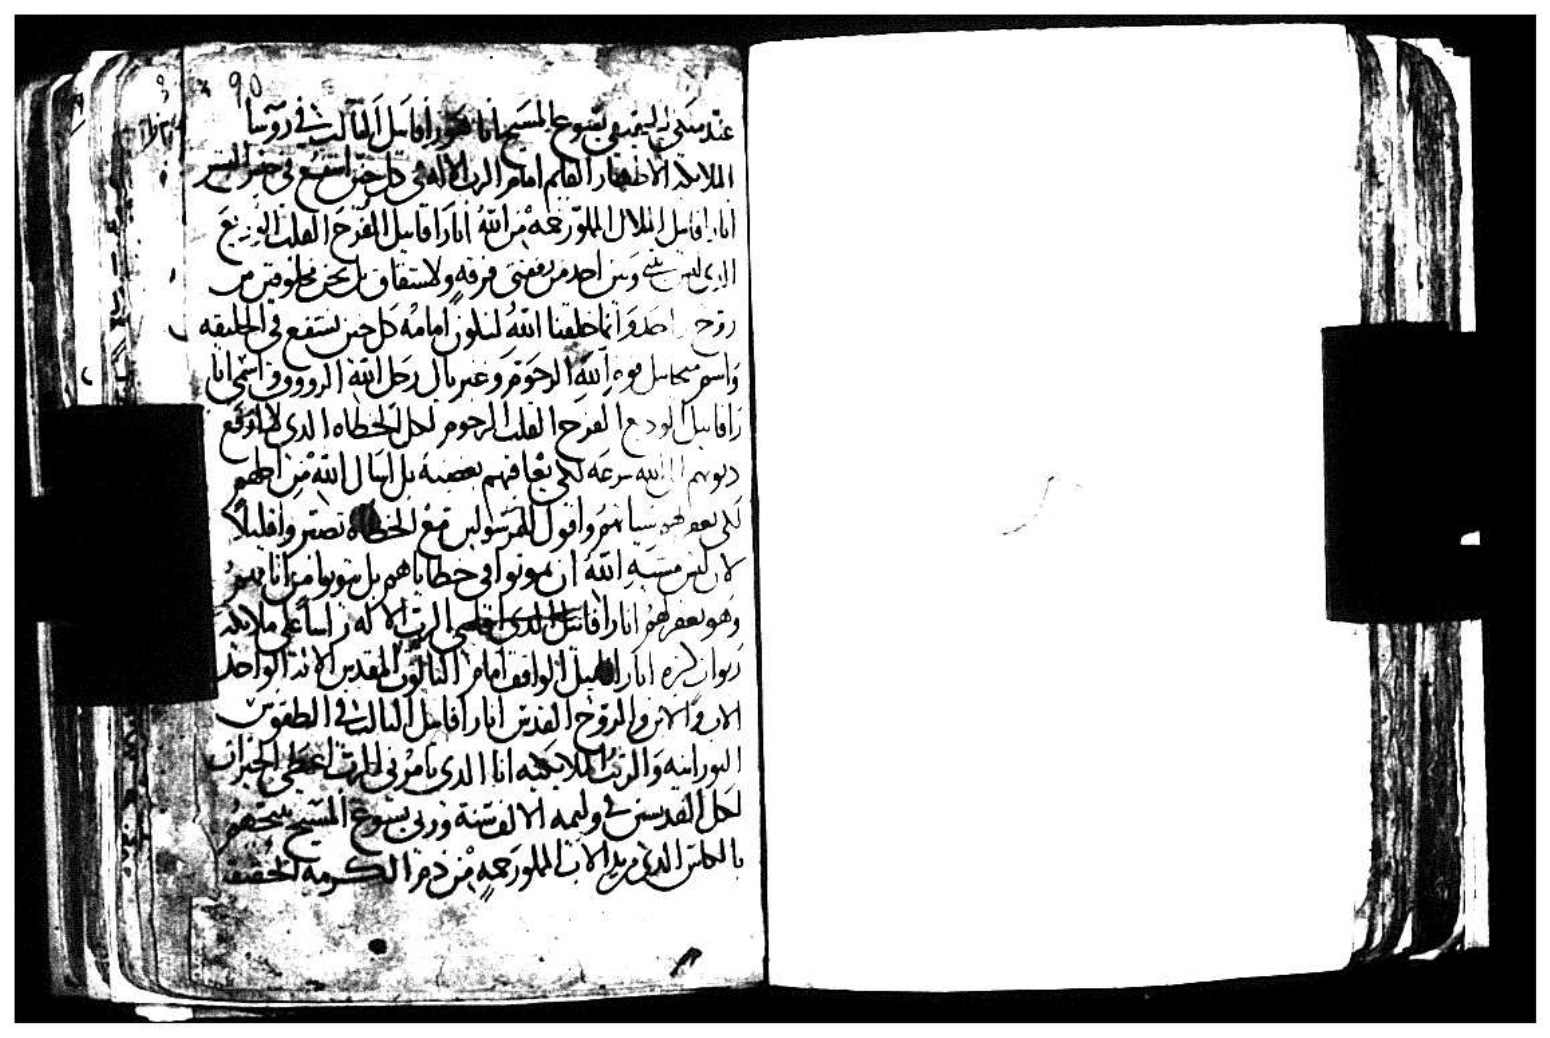 90
انا هو رافاييل الثالث في روسا
الملايكه الاطهار القايم امام الرب الاله في كل حين اشفع في جنس البشر
انا رافاييل الملاك المملو رحمه من الله انا رافاييل الفرح القلب الوديع
الذي ليس بيني وبين احد من رفقتي فرقه ولا شقاق بل نحن مخلوقين من
روح واحد وانما خلقنا الله لنكون امامه كل حين نشفع في الخليقه
واسم ميخاييل قوه الله الرحوم وغبريال رجل الله الرووف اسمي انا
رافاييل الوديع الفرح القلب الرحوم لاجل الخطاه الذي لا ارفع
ديونهم الى الله سرعه لكي يعاقبهم بغضبه بل اسال الله من اجلهم
لكي يغفر لهم سياتهم واقول للمرسولين مع الخطاه تصبروا قليلا
لان ليس مشية الله ان يموتوا في خطاياهم بل يتوبوا من اثامهم
وهو يغفر لهم انا رافاييل الذي اقامني الرب الاله راسا على ملايكه
ربوات كثره انا رافاييل الواقف امام الثالوث المقدس الاله الواحد
الاب والابن والروح القدس انا رافاييل الثالث في الطقوس
النورانيه والرتب الملايكيه انا الذي يامرني الرب اعطي الخيرات
لاجل القديسين في وليمه الالف سنة وربي يسوع المسيح
بالكاس الذي يريد الاب المملو رحمه من دم الكرمه الحقيقيه